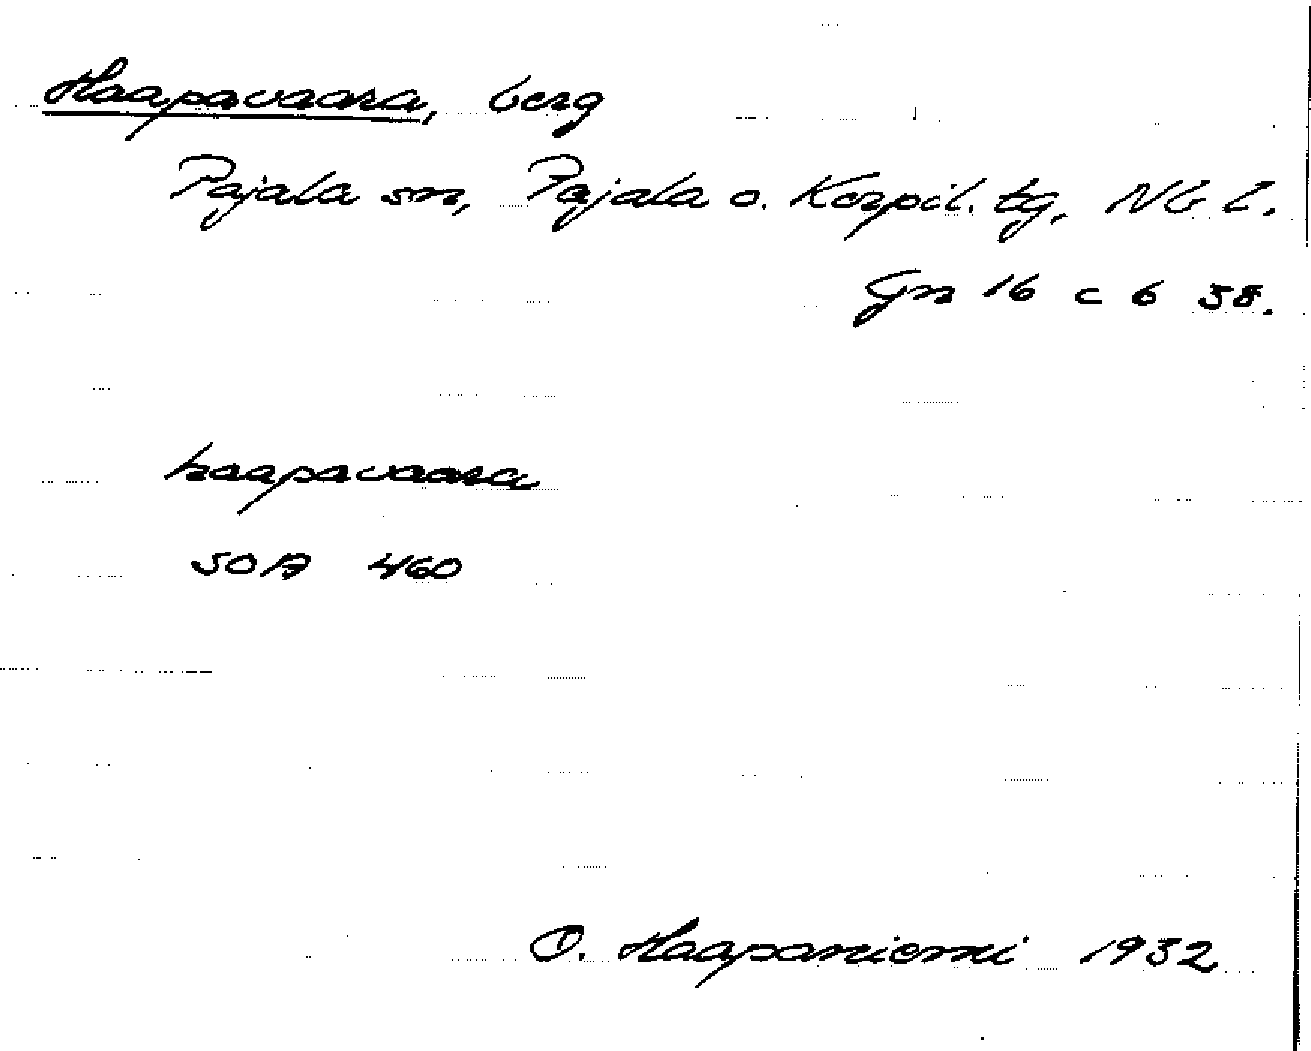 Haapavaara, berg
Pajala sn, Pajala o. Korpil. tg, Nb l.
Gn 16 c b 38.
haapavaara
SOA 460
O. Haapaniemi 1932